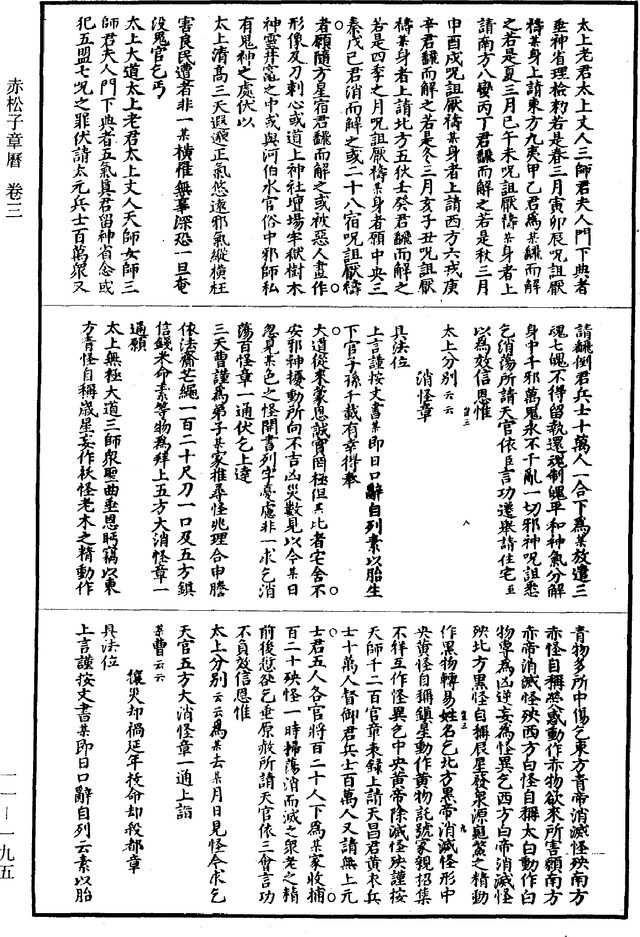 赤松子章曆 卷三
太上老君太上丈人三師君夫人門下典者
垂神省理檢勑若是春三月寅卯辰呪詛厭
禱某身上請東方九夷甲乙君爲某飜而解
之若是夏三月巳午未呪詛厭禱某身者上
請南方八蠻丙丁君飜而解之若是秋三月
申酉戌呪詛厭禱某身者上請西方六戎庚
辛君飜而解之若是冬三月亥子丑呪詛厭
禱某身者上請北方五狄壬癸君飜而解之
若是四季之月呪詛厭禱某身者願中央三
秦戊己君消而解之或二十八宿呪詛厭禱
者願隨方星宿君飜而解之或被惡人畫作
形像及刀刺心或道上神社壇場牢獄樹木
神靈井竈之中或與河伯水官俗中邪師私
有鬼神之處伏以
太上清高三天遐邈正氣悠遠邪氣縱橫枉
害良民遭者非一某橫罹無辜深恐一旦奄
沒鬼官乞丐
太上大道太上老君太上丈人天師女師三
師君夫人門下典者五氣真君留神省念或
犯五盟七呪之罪伏請太元兵士百萬眾又
請飜倒君兵士十萬人一合下爲某放遣三
魂七魄不得留執還魂制魄平和神氣分解
身中千邪萬鬼永不干亂一切邪神呪詛悉
乞消蕩所請天官依臣言功遷舉請住宅臣
以爲效信恩惟
太上分別云云
消怪章
具法位
上言謹按文書某即日口辭自列素以胎生
下官子孫千載有幸得奉
大道從來蒙恩誠實罔極但某比者宅舍不
安邪神擾動所向不吉凶災數見以今某日
忽見某色之怪開書列字憂慮非一求乞消
蕩百怪章一通伏乞上達
三天曹謹爲弟子某家推尋怪兆理合申謄
依法齋芒繩一百二十尺刀一口及五方鎮
信錢米命素等物爲拜上五方大消怪章一
通願
太上無極大道三師眾聖曲垂恩眄竊以東
方青怪自稱歲星妄作妖怪老木之精動作
青物多所中傷乞東方青帝消滅怪殃南方
赤怪自稱熒惑動作赤物欲來所害願南方
赤帝消滅怪殃西方白怪自稱太白動作白
物專爲凶逆妄爲怪異乞西方白帝消滅怪
殃北方黑怪自稱辰星發泉源龜鱉之精動
作黑物轉易姓名乞北方黑帝消滅怪形中
央黃怪自稱鎮星動作黃物託號家親招集
不祥互作怪異乞中央黃帝除滅怪殃謹按
天師千二百官章表錄上請天昌君黃衣兵
士十萬人督御君兵士百萬人又請無上元
士君五人各官將百二十人下爲某家收捕
百二十殃怪一時掃蕩消而滅之眾老之精
前後愆欲乞垂原赦所請天官依三會言功
不負效信恩惟
太上分別云云爲某去某月日見怪今求乞
天官五方大消怪章一通上詣
某曹云云
禳災却禍延年拔命却殺都章
具法位
上言謹按文書某即日口辭自列云素以胎
一一—一九五